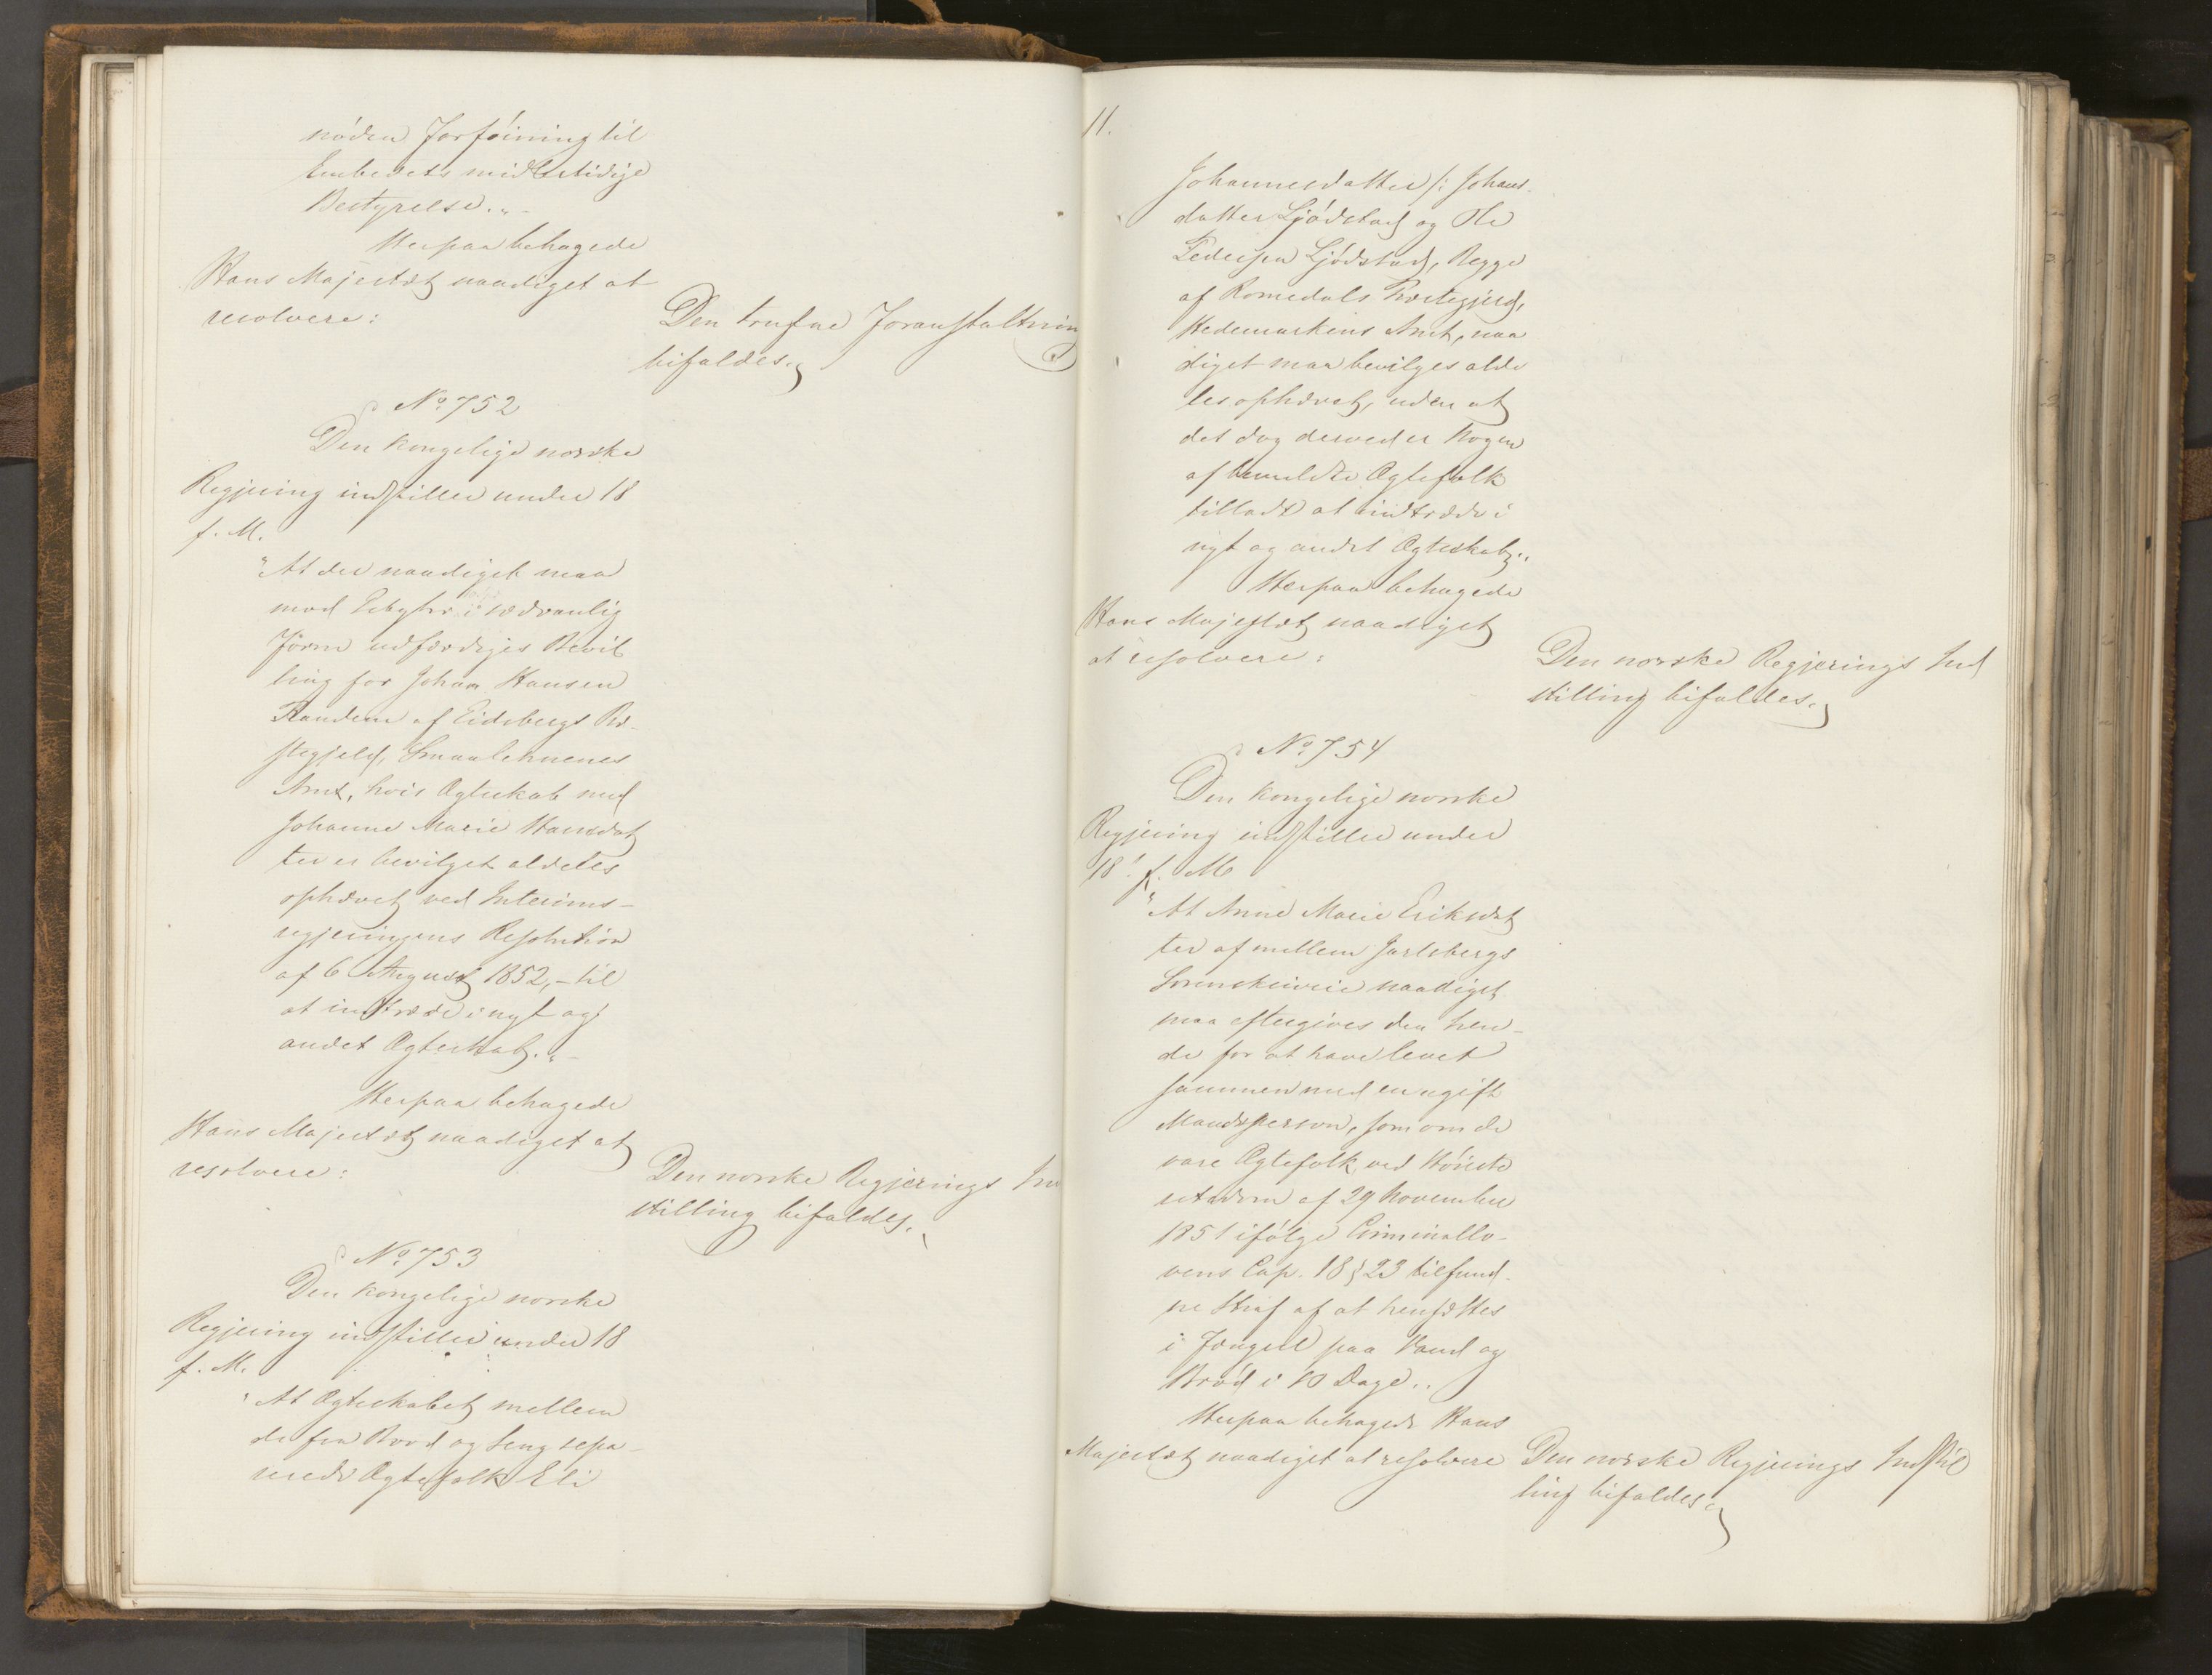 nøden Forføining til
Embedets midlertidige
Bestyrelse."-
Herpaa behagede
Hans Majestæt naadigst at
resolvere:
Den trufne Foranstaltning
bifaldes.
No 752
Den kongelige norske
Regjering indstiller under 18
f. M.
"At der naadigst maa
mod Gebyhr i sædvanlig
Form udfærdiges Bevil
ling for Johan Hansen
af Eidsbergs Præ-
stegjeld, Smaalehnenes
Amt, hvis Ægteskab med
Johanne Marie Hansdat
ter er bevilget aldeles
ophævet ved Interims-
regjeringens Resolution
af 6 August 1852, - til
at indtræde i nyt og
andet Ægteskab."-
Herpaa behagede
Hans Majestæt naadigst at
resolvere:
Den norske Regjerings Ind
stilling bifaldes.
No 753
Den kongelige norske
Regjering indstiller under 18
f. M.
"At Ægteskabet mellem
de fra Bord og Seng sepa-
rerede Ægtefolk Eli
11.
Johannesdatter /: Johans-
datter Ljødstad og Ole
Pedersen Ljødstad, Begge
af Romedals Præstegjeld,
Hedemarkens Amt, naa
digst maa bevilges alde
les ophævet, uden at
det dog derved er Nogen
af bemeldte Ægtefolk
tilladt at indtræde i
nyt og andet Ægteskab."
Herpaa behagede
Hans Majestæt naadigst
at resolvere:
Den norske Regjerings Ind
stilling bifaldes.
No 754
Den kongelige norske
Regjering indstiller under
18. f. M.
"At Anne Marie Eriksdat
ter af mellem Jarlsbergs
Sorenskriverie naadigst
maa eftergives den hen-
de for at have levet
sammen med en ugift
Mandsperson, som om de
vare Ægtefolk ved Høieste
retsdom af 29 November
1851 ifølge Criminallo-
vens Cap. 18 § 23 tilfund-
ne Straf af at hensættes
i Fængsel paa Vand og
Brød i 10 Dage."
Herpaa behagede Hans
Majestæt naadigst at resolvere
Den norske Regjerings Indstil
ling bifaldes.